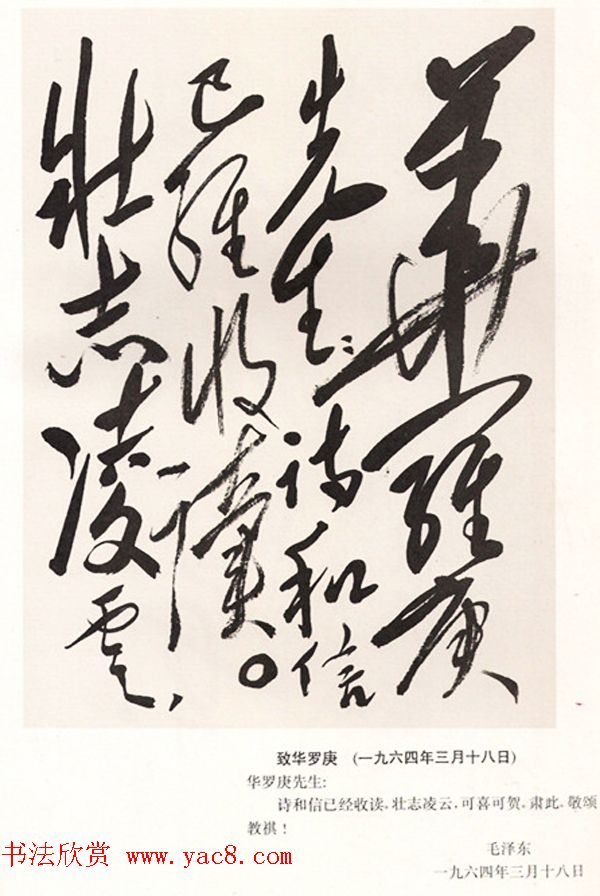 華羅庚
先生：诗和信
已經收讀。
壯志凌雲，
致华罗庚 (一九六四年三月十八日)
华罗庚先生:
诗和信已经收读。壮志凌云，可喜可贺。肃此，敬颂
教祺！
毛泽东
一九六四年三月十八日
书法欣赏 www.yac8.com